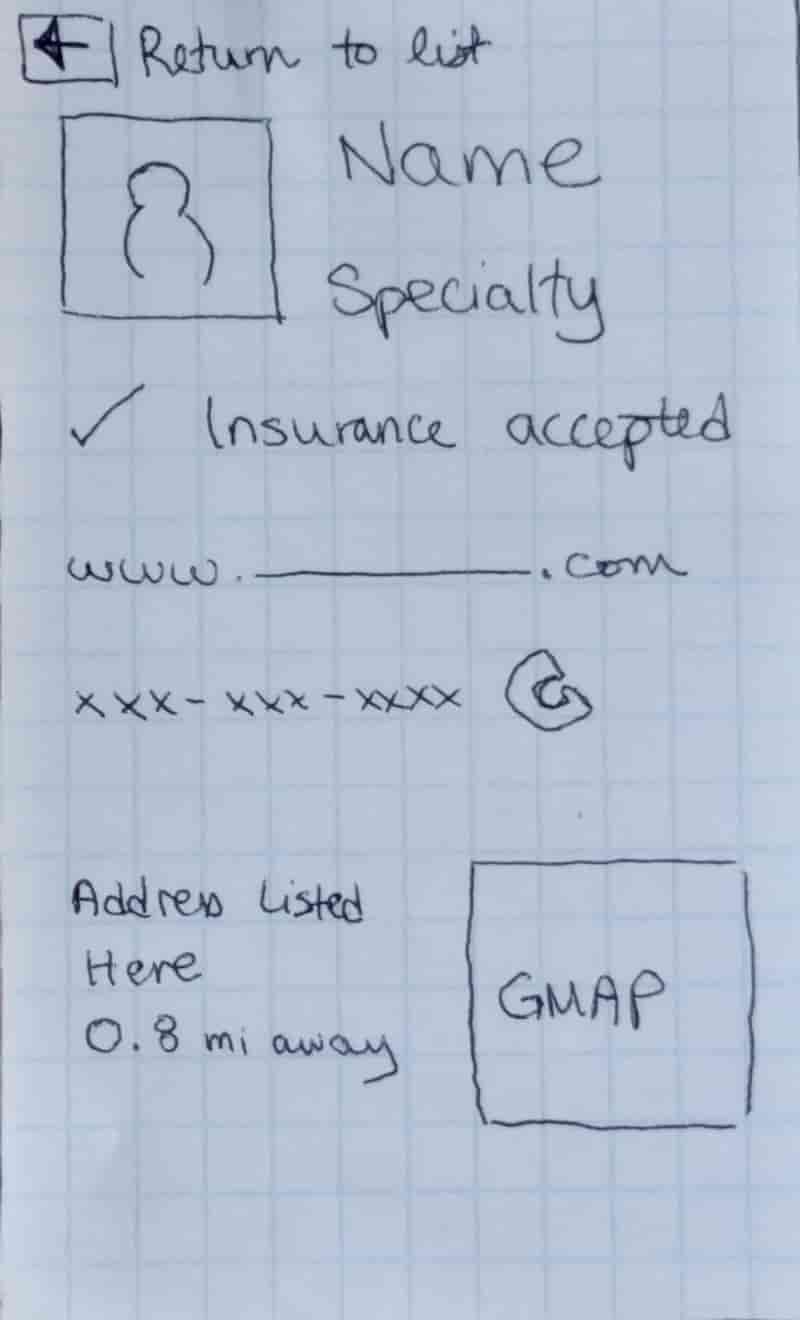 Return to list
Name
Specialty
✓ Insurance accepted
www.________.com
xxx-xxx-xxxx
Address Listed
Here
0.8 mi away
GMAP